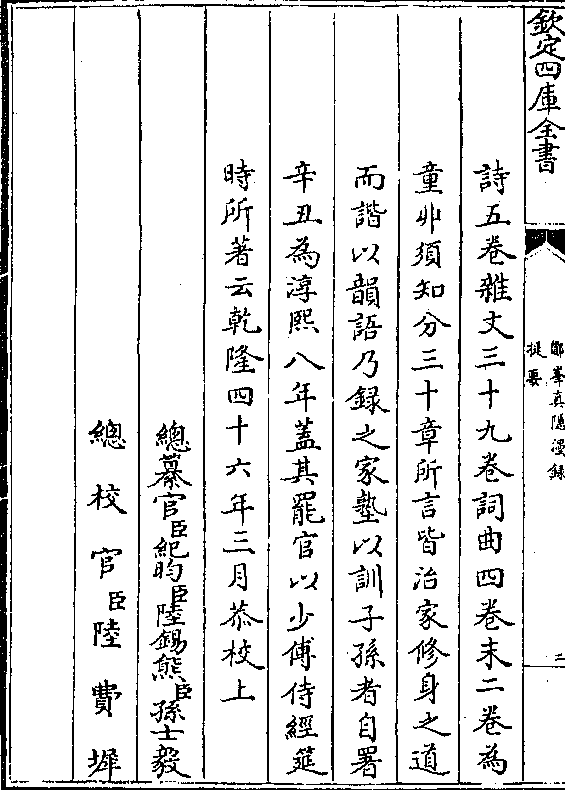 欽定四庫全書
鄮峯真隱漫録
提要
二
詩五卷雜文三十九卷詞曲四卷末二卷為
童丱須知分三十章所言皆治家修身之道
而諧以韻語乃録之家塾以訓子孫者自署
辛丑為淳熙八年蓋其罷官以少傅侍經筵
時所著云乾隆四十六年三月恭校上
總纂官臣紀昀臣陸錫熊臣孫士毅
總校官臣陸費墀